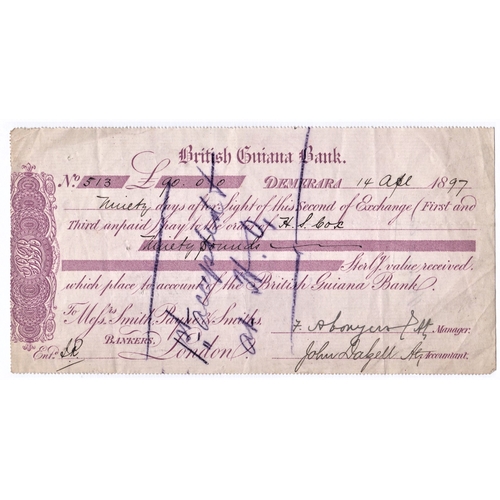 British Guiana Bank.
No. 513 £90.0.0 DEMERARA 14 Apl 1897
Ninety days after Sight of this Second of Exchange (First and
Third unpaid) Pay to the order of H. S. Cox
Ninety Pounds
Sterlg. value received,
which place to account of the British Guiana Bank.
To Messrs Smith, Payne & Smiths,
BANKERS,
London
Manager.
Entd.
John Dalzell Accountant.
1st Accepted
at H.O.